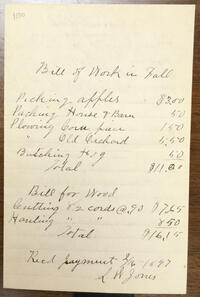 Bill of Work in Fall
Picking apples $2.00
Packing House & Barn 50
Plowing Corn 1.50
" Old Orchard 5.50
Butching Hog 50
Total $11.00
Bill for Wood
Cutting 8 2 cords @ .90 $7.65
Hauling " " 8.50
Total $16.15
Recd payment 2/6-1897
S W Jones